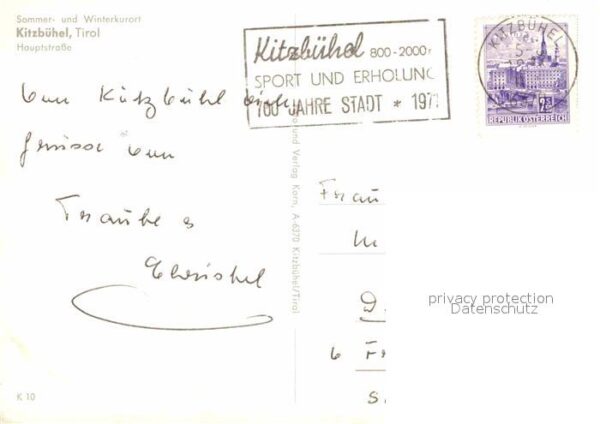 Sommer- und Winterkurort
Kitzbühel, Tirol
Hauptstraße
Kitzbühel 800-2000
SPORT UND ERHOLUNG
700 JAHRE STADT * 1971
KITZBÜHEL
REPUBLIK ÖSTERREICH
Kitzbühel
Grüsse
Traube &
Christel
und Verlag Korn, A-6370 Kitzbühel/Tirol
Frau
M
D
6 F
S.
privacy protection
Datenschutz
K 10